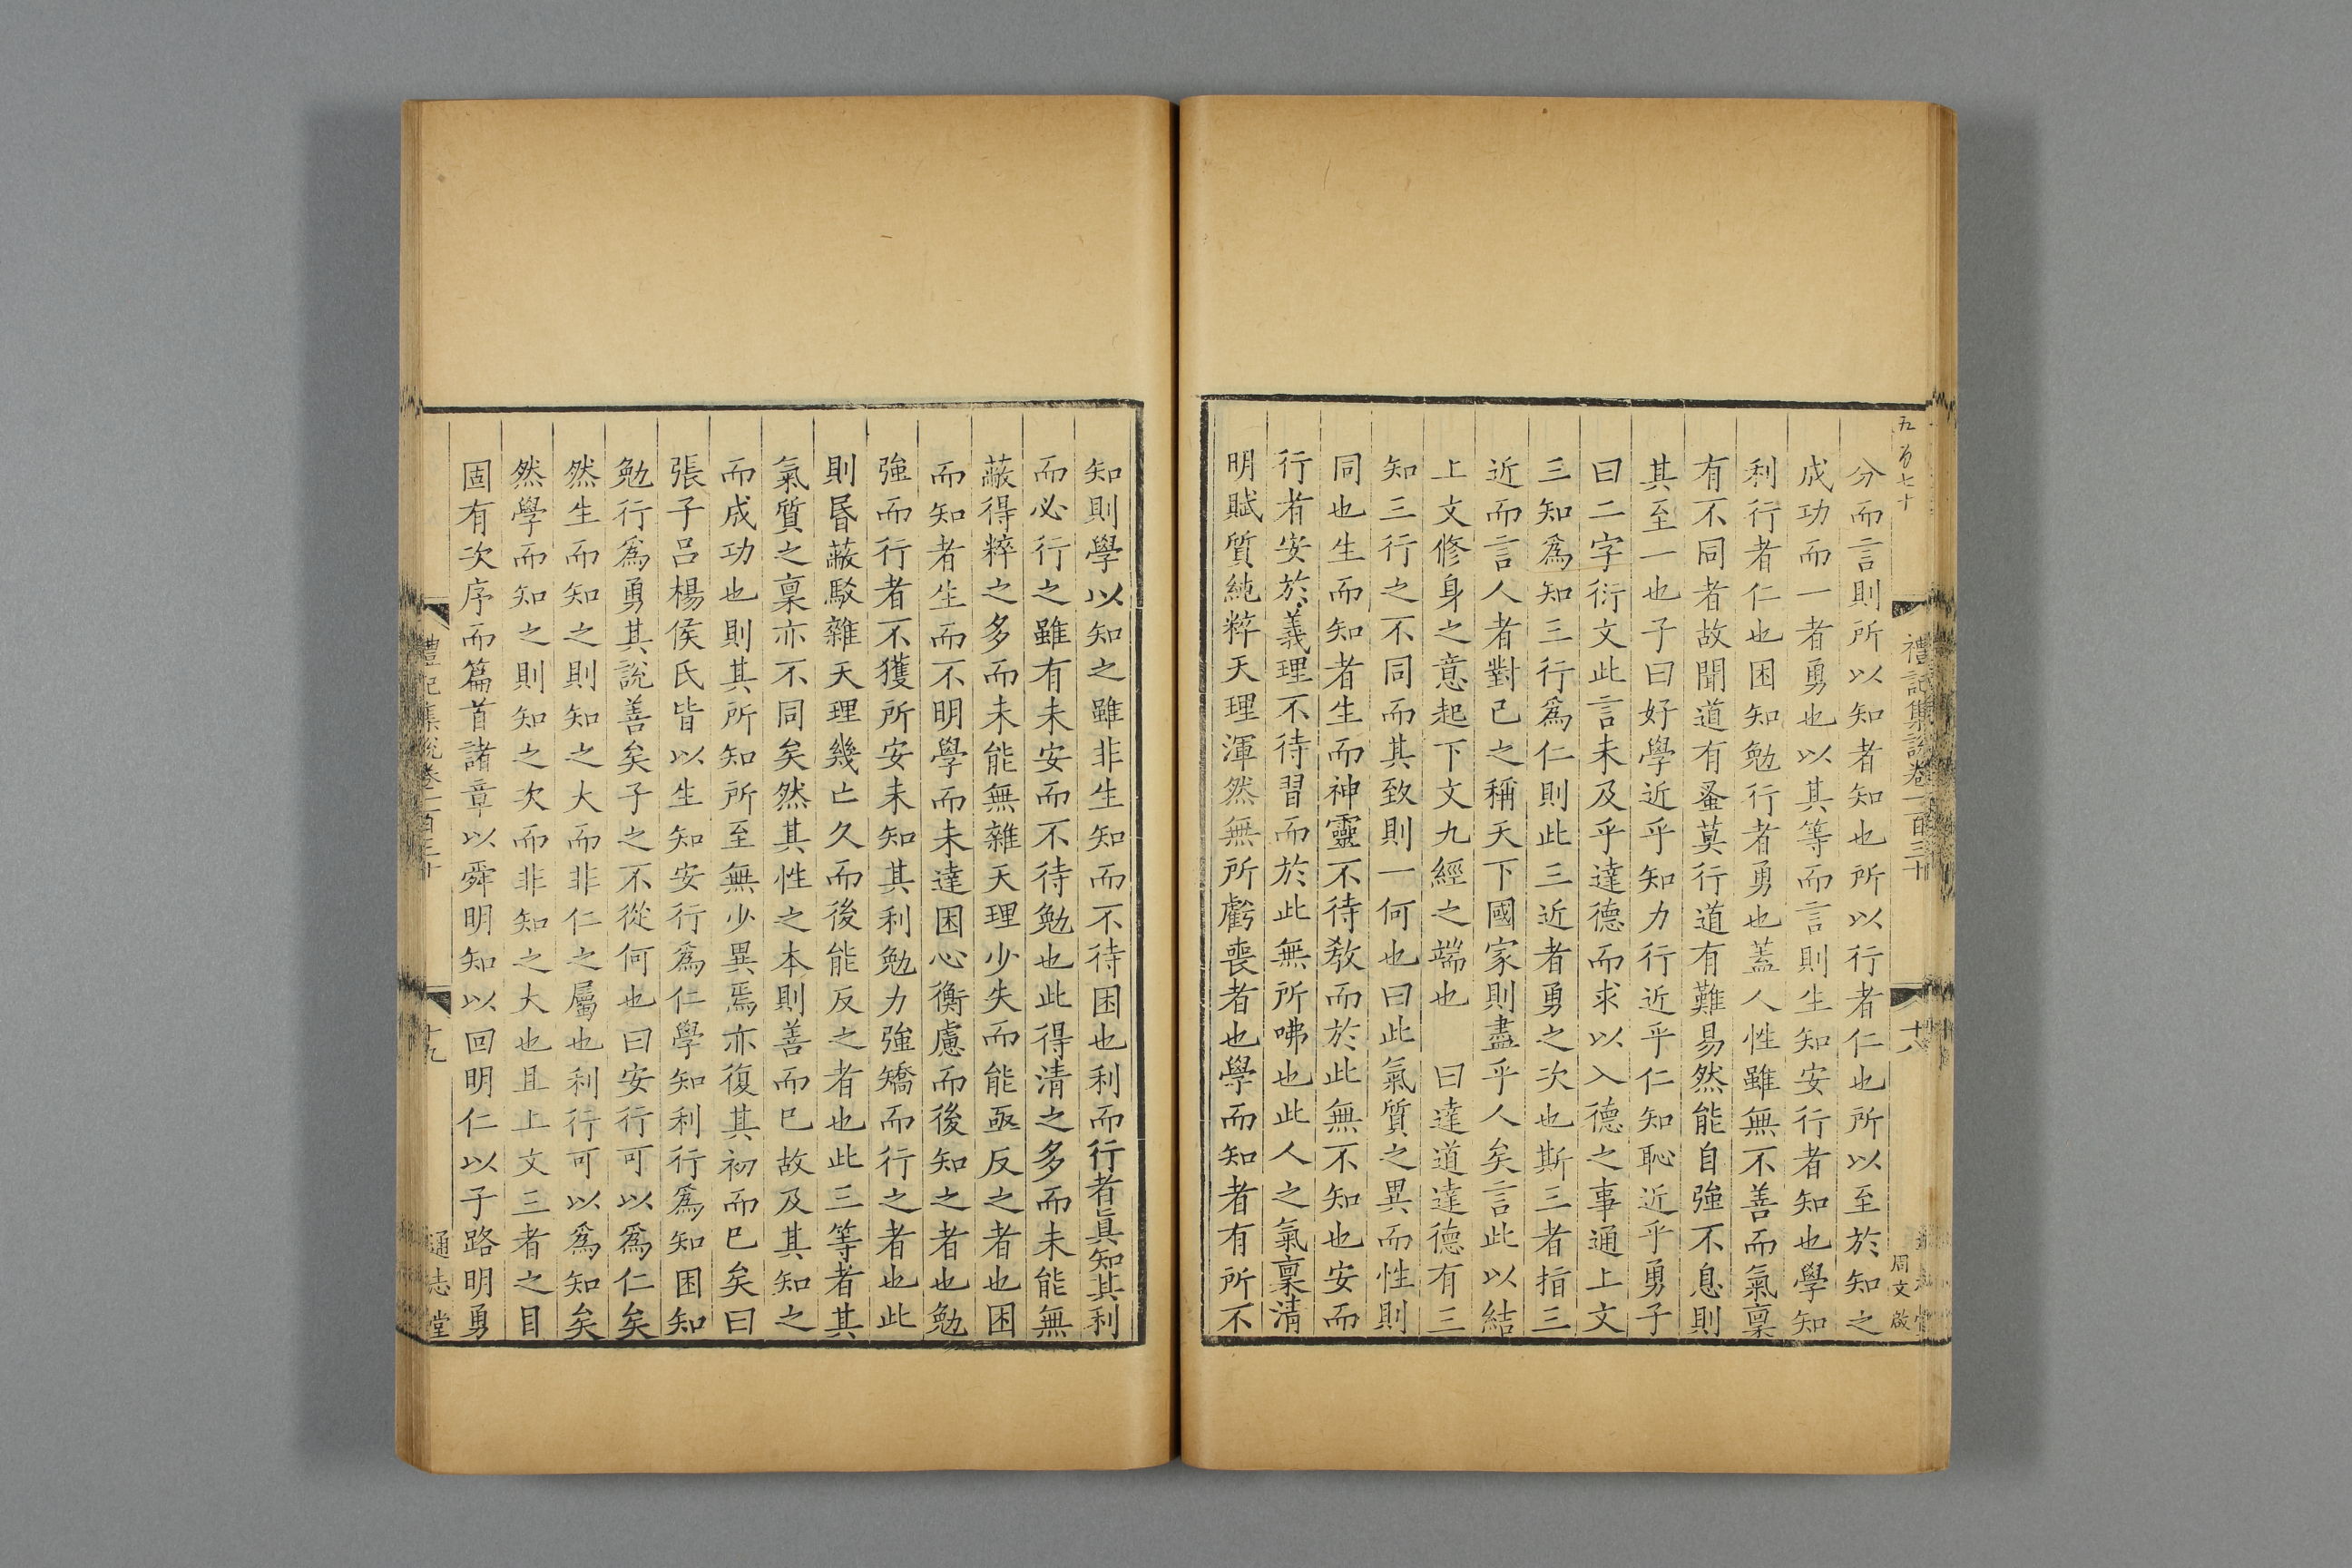 五百七十
禮記集說卷一百三十
十八
周文啟
分而言則所以知者知也所以行者仁也所以至於知之
成功而一者勇也以其等而言則生知安行者知也學知
利行者仁也困知勉行者勇也蓋人性雖無不善而氣稟
有不同者故聞道有蚤莫行道有難易然能自強不息則
其至一也子曰好學近乎知力行近乎仁知恥近乎勇子
曰二字衍文此言未及乎達德而求以入德之事通上文
三知爲知三行爲仁則此三近者勇之次也斯三者指三
近而言人者對己之稱天下國家則盡乎人矣言此以結
上文修身之意起下文九經之端也 曰達道達德有三
知三行之不同而其致則一何也曰此氣質之異而性則
同也生而知者生而神靈不待教而於此無不知也安而
行者安於義理不待習而於此無所咈也此人之氣稟清
明賦質純粹天理渾然無所虧喪者也學而知者有所不
知則學以知之雖非生知而不待困也利而行者眞知其利
而必行之雖有未安而不待勉也此得清之多而未能無
蔽得粹之多而未能無雜天理少失而能亟反之者也困
而知者生而不明學而未達困心衡慮而後知之者也勉
強而行者不獲所安未知其利勉力強矯而行之者也此
則昏蔽駁雜天理幾亡久而後能反之者也此三等者其
氣質之稟亦不同矣然其性之本則善而已故及其知之
而成功也則其所知所至無少異焉亦復其初而已矣曰
張子呂楊侯氏皆以生知安行爲仁學知利行爲知困知
勉行爲勇其說善矣子之不從何也曰安行可以爲仁矣
然生而知之則知之大而非仁之屬也利行可以爲知矣
然學而知之則知之次而非知之大也且上文三者之目
固有次序而篇首諸章以舜明知以回明仁以子路明勇
禮記集說卷一百三十
十九
通志堂